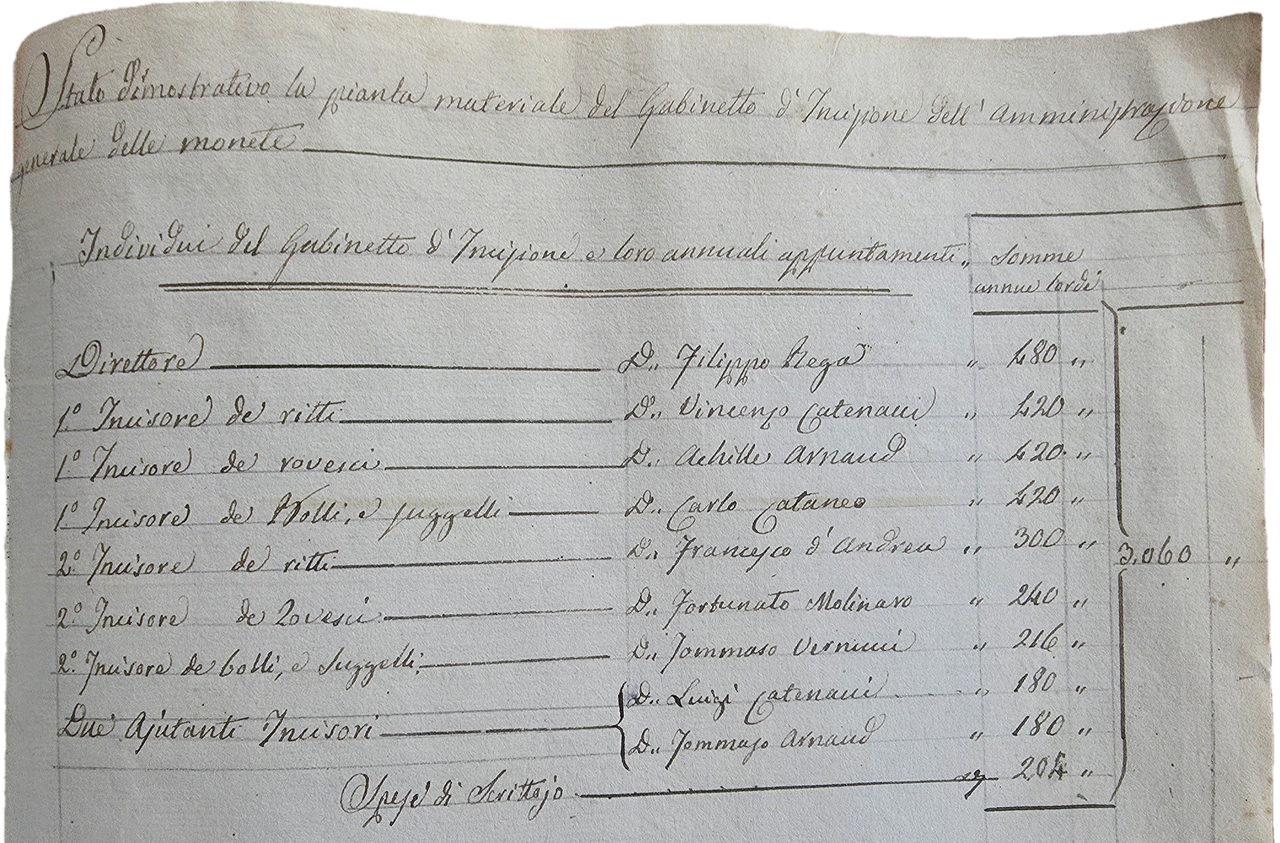 Stato dimostrativo la pianta materiale del Gabinetto d'Incisione dell'Amministrazione
generale delle monete
Individui del Gabinetto d'Incisione e loro annuali appuntamenti „ Somme
annue lorde
Direttore D.„ Filippo Rega „ 480 „
1.º Incisore de' ritti D.„ Vincenzo Catenacci „ 420 „
1.º Incisore de' rovesci D.„ Achille Arnaud „ 420 „
1.º Incisore de' Bolli, e suggelli D.„ Carlo Cataneo „ 420 „
2.º Incisore de' ritti D.„ Francesco d'Andrea „ 300 „
3,060 „
2.º Incisore de' Rovesci D.„ Fortunato Molinaro „ 240 „
2.º Incisore de bolli, e Suggelli D.„ Tommaso Vernucci „ 216 „
Due Ajutanti Incisori D.„ Luigi Catenacci „ 180 „
D.„ Tommaso Arnaud „ 180 „
Spese di Scrittojo „ 204 „